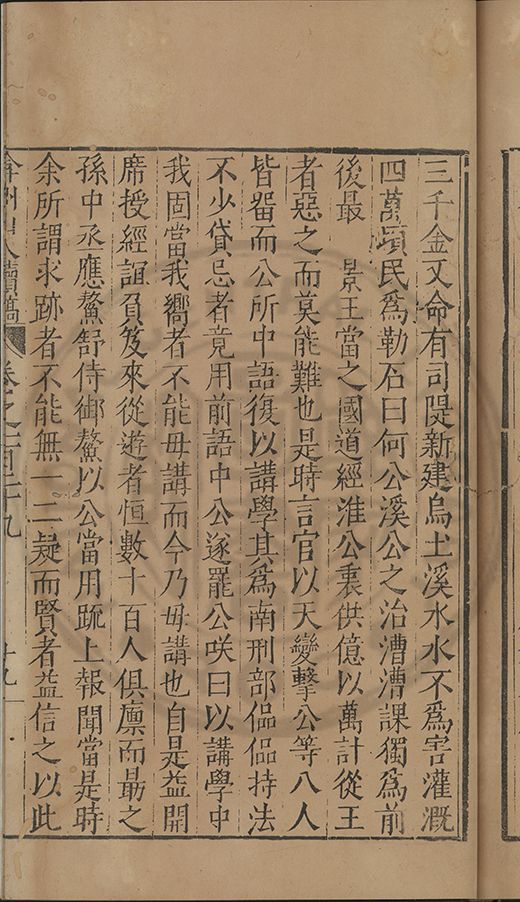 三千金又命有司隄新建烏土溪水水不爲害灌漑
四萬頃民爲勒石曰何公溪公之治漕漕課獨爲前
後最　景王當之國道經淮公裹供億以萬計從王
者惡之而莫能難也是時言官以天變擊公等八人
皆畱而公所中語復以講學其爲南刑部傴傴持法
不少貸忌者竟用前語中公遂罷公咲曰以講學中
我固當我嚮者不能毋講而今乃毋講也自是益開
席授經誼負笈來從遊者恒數十百人俱廪而朂之
孫中丞應鰲舒侍御鰲以公當用䟽上報聞當是時
余所謂求跡者不能無一二疑而賢者益信之以此
弇州山人續稿 卷之一百二十九 十九